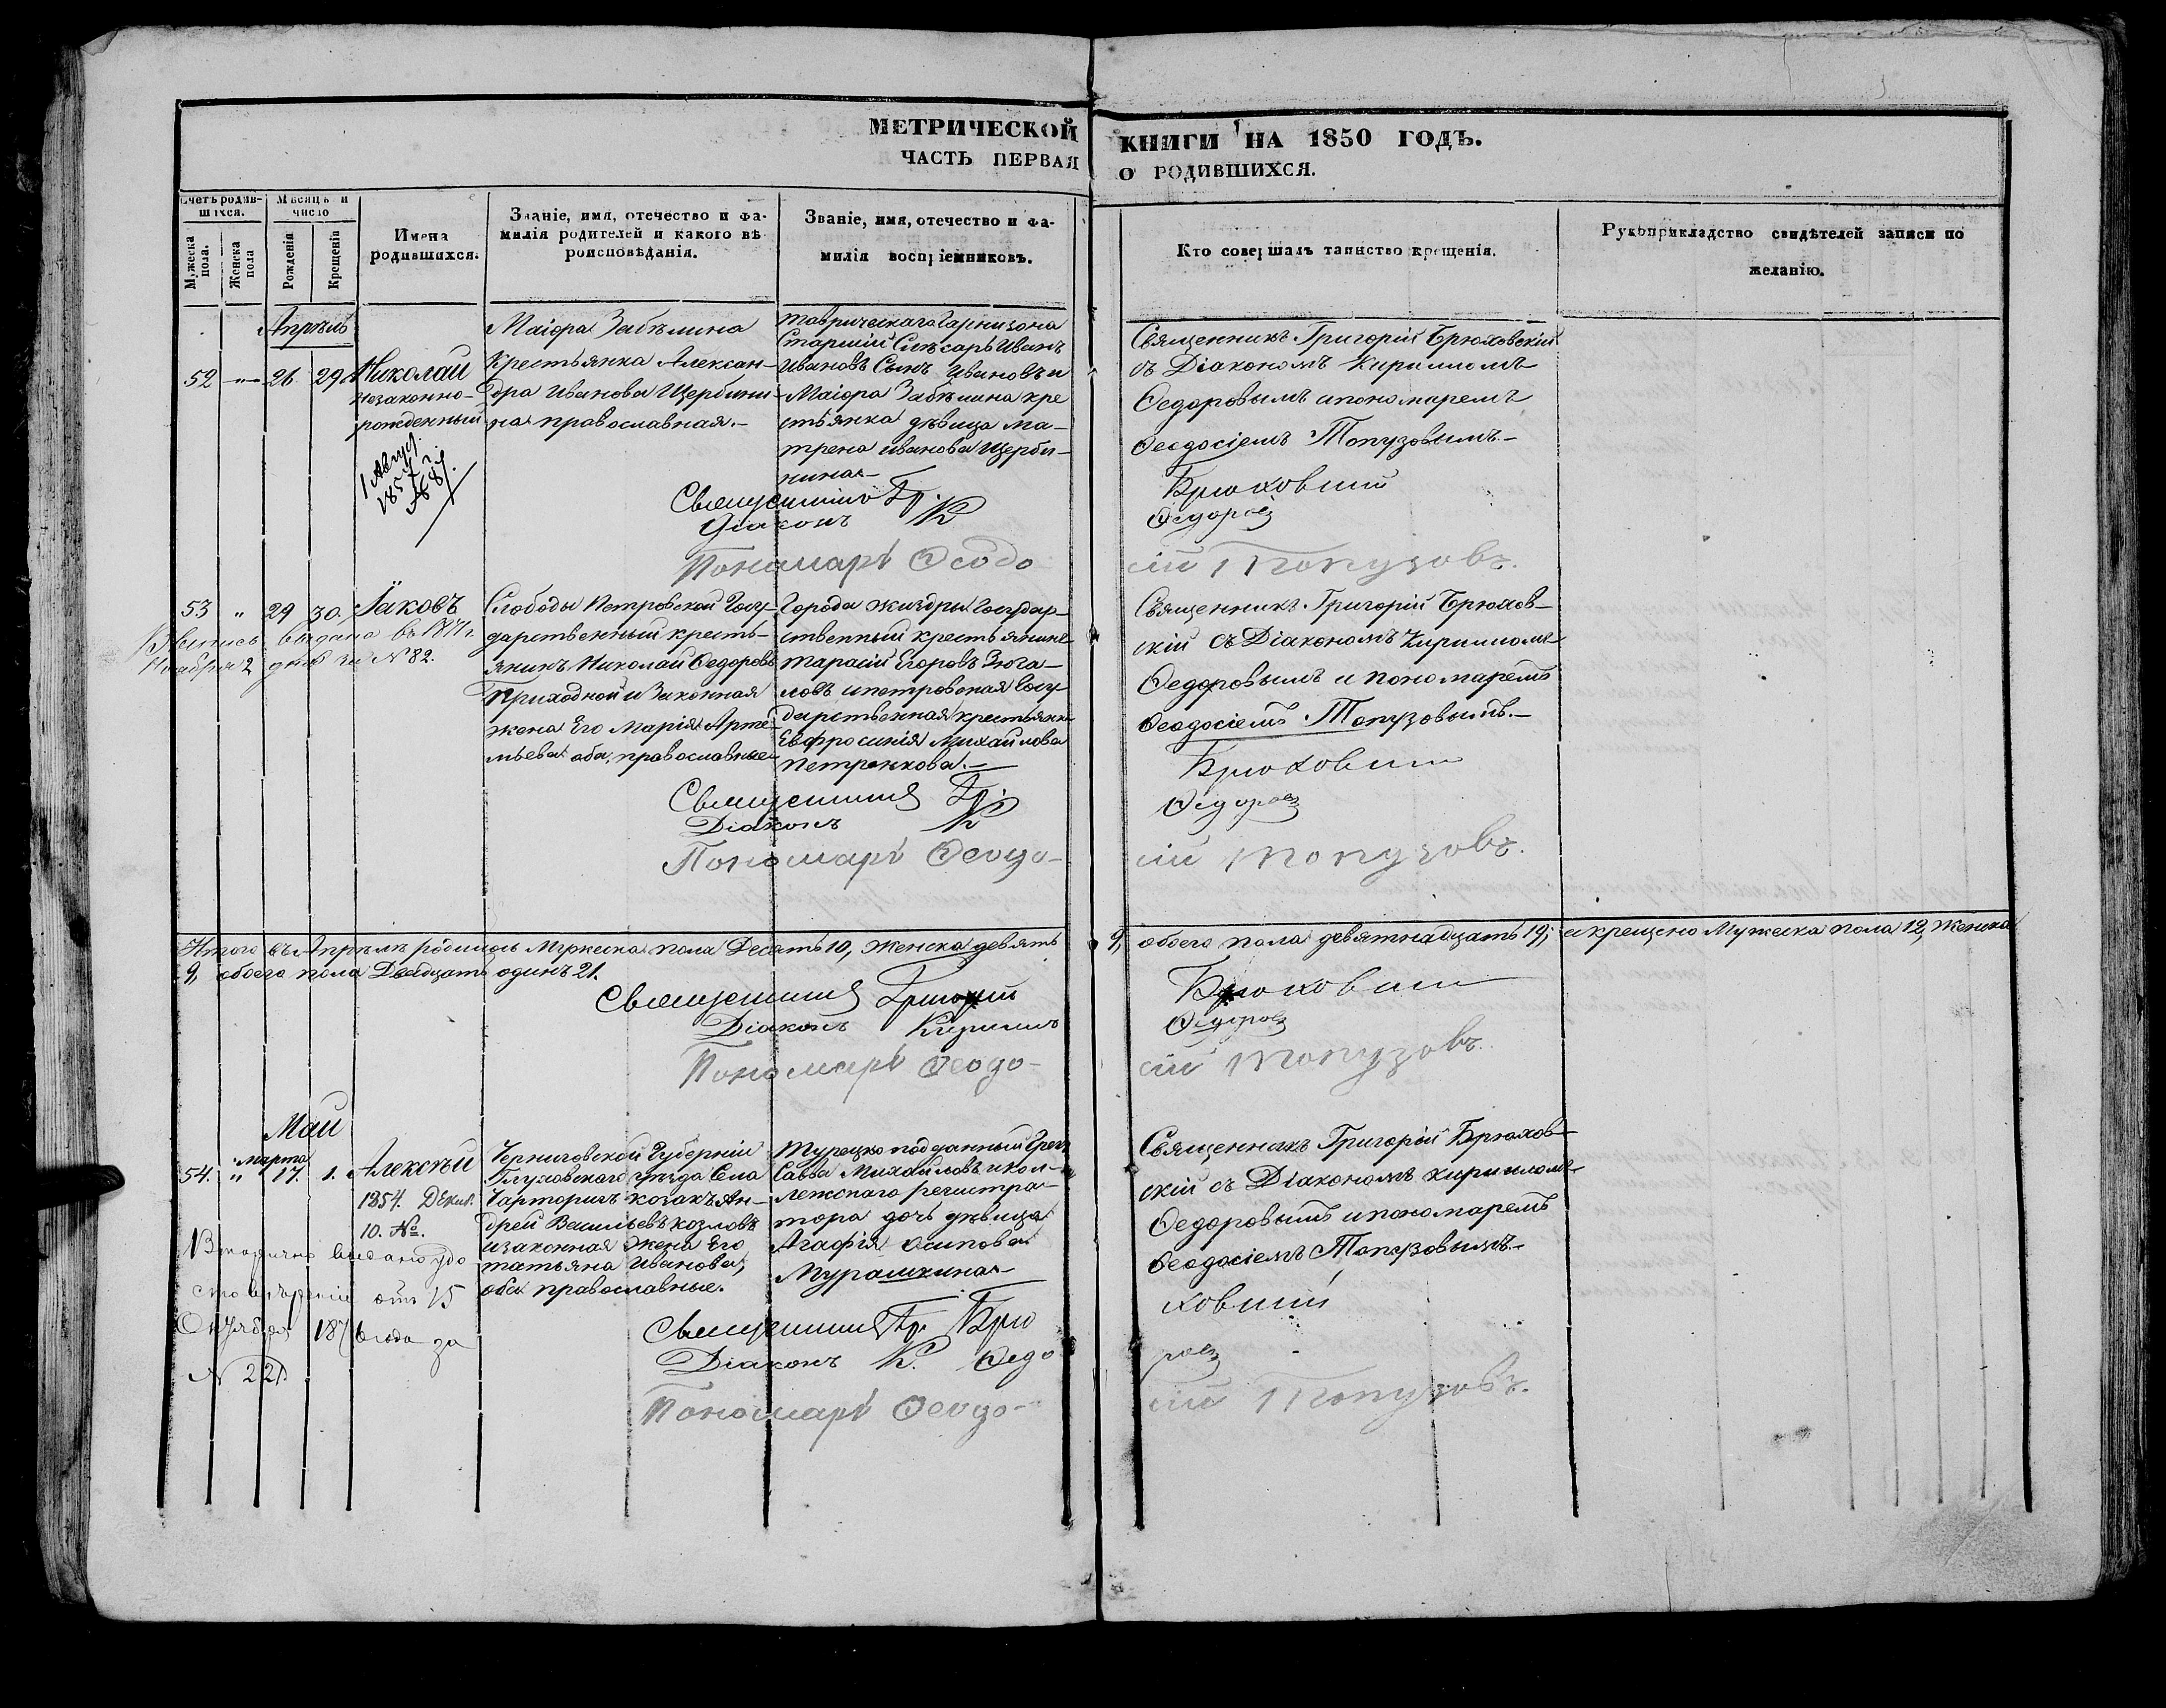 МЕТРИЧЕСКОЙ КНИГИ НА 1850 ГОДЪ.
ЧАСТЬ ПЕРВАЯ О РОДИВШИХСЯ.
Счетъ родив-
шихся.
Мужеска
пола.
Женска
пола
Мѣсяцъ и
число
Рожденія
Крещенія
Имена
родившихся.
Званіе, имя, отечество и фа-
милія родителей и какого вѣ
роисповѣданія.
Званіе, имя, отечество и фа-
милія воспріемниковъ.
Кто совершалъ таинство крещенія.
Рукоприкладство свидѣтелей записи по
желанію.
Апрѣль
52 " 26 29 Николай
незаконно-
рожденный
1 Август.
1857 г.
№ 87.
Маіора Забѣлина
Крестьянка Алексан-
дра Иванова Щербини-
на православная.-
Таврическаго Гарнизона
Старшій Слѣсарь Иванъ
Ивановъ Сынъ Ивановъ и
Маіора Забѣлина кре
стьянка дѣвица Ма-
трена Иванова Щерби-
нина
Священникъ Григорій Брюховскій
съ Діакономъ Кирилломъ
Ѳедоровымъ и пономаремъ
Ѳеодосіемъ Топузовымъ.-
Священникъ Гр. Брюховскій
Діаконъ К Ѳедоровъ
Пономарь Ѳеодо
сій Топузовъ.
53 " 29 30. Іаковъ
выдана въ 1871 г.
Ноября 2 дня за № 82.
Слободы Петровской Госу-
дарственный кресть-
янинъ Николай Ѳедоровъ
Приходной и Законная
жена Его Марія Арте-
мьева оба православные
Города Жиздры Государ-
ственный крестьянинъ
Тарасій Егоровъ Зюга-
ловъ и петровская Госу-
дарственная крестьянка
Евфросинія Михайлова
Петренкова.-
Священникъ Григорій Брюхов-
скій съ Діакономъ Кирилломъ
Ѳедоровымъ и пономаремъ
Ѳеодосіемъ Топузовымъ.-
Священникъ Гр. Брюховскій
Діаконъ К Ѳедоровъ
Пономарь Ѳеодо-
сій Топузовъ.
Итого въ Апрѣлѣ родилось Мужеска пола Десять 10, Женска девять 9, обоего пола девятнадцать 19; а крещено Мужеска пола 12, Женска
9, обоего пола Двадцать одинъ 21.
Священникъ Григорій Брюховскій
Діаконъ Кириллъ Ѳедоровъ
Пономарь Ѳеодо-
сій Топузовъ.
Май
54. " Марта 17. 1. Алексѣй
1854. Декаб.
10. №.
Вторично выдано удо
стовѣреніе отъ 15
Октября 1876 года за
№ 221
Черниговской Губерніи
Глуховского уѣзда Села
Чарторигъ козакъ Ан-
дрей Васильевъ Козловъ
и законная жена Его
Татьяна Иванова,
оба православные.
Турецко подданный Грекъ
Савва Михайловъ и кол-
лежскаго регистра-
тора дочь дѣвица
Агафія Осипова
Мурашкина
Священникъ Григорій Брюхов-
скій съ Діакономъ Кирилломъ
Ѳедоровымъ и пономаремъ
Ѳеодосіемъ Топузовымъ.-
Священникъ Гр. Брю
ховскій
Діаконъ К. Ѳедо
ровъ
Пономарь Ѳеодо-
сій Топузовъ.